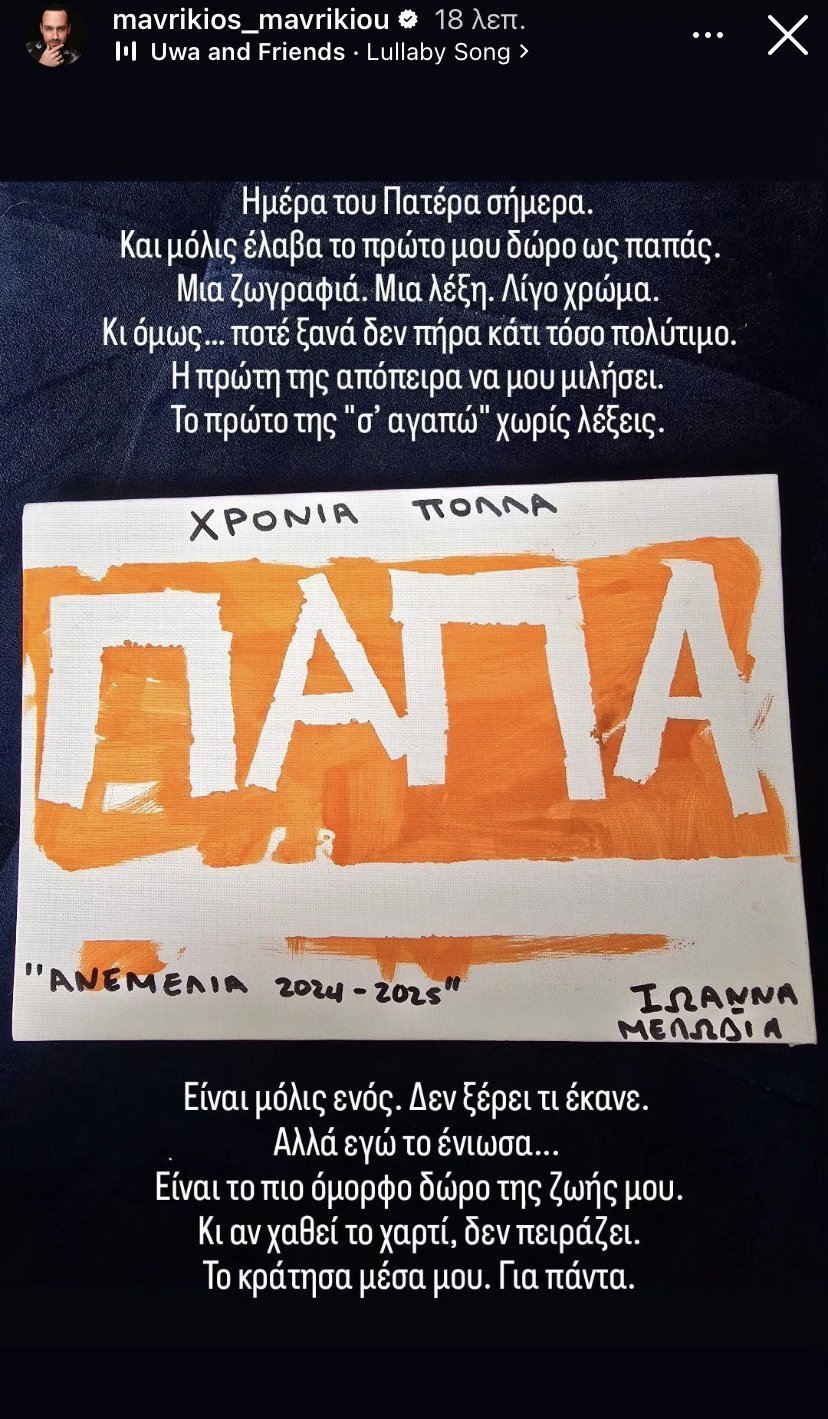 mavrikios_mavrikiou 18 λεπ.
Uwa and Friends · Lullaby Song >
Ημέρα του Πατέρα σήμερα.
Και μόλις έλαβα το πρώτο μου δώρο ως παπάς.
Μια ζωγραφιά. Μια λέξη. Λίγο χρώμα.
Κι όμως... ποτέ ξανά δεν πήρα κάτι τόσο πολύτιμο.
Η πρώτη της απόπειρα να μου μιλήσει.
Το πρώτο της "σ' αγαπώ" χωρίς λέξεις.
ΧΡΟΝΙΑ ΠΟΛΛΑ
ΠΑΠΑ
"ΑΝΕΜΕΛΙΑ 2024-2025"
ΙΩΑΝΝΑ
ΜΕΛΩΔΙΑ
Είναι μόλις ενός. Δεν ξέρει τι έκανε.
Αλλά εγώ το ένιωσα...
Είναι το πιο όμορφο δώρο της ζωής μου.
Κι αν χαθεί το χαρτί, δεν πειράζει.
Το κράτησα μέσα μου. Για πάντα.